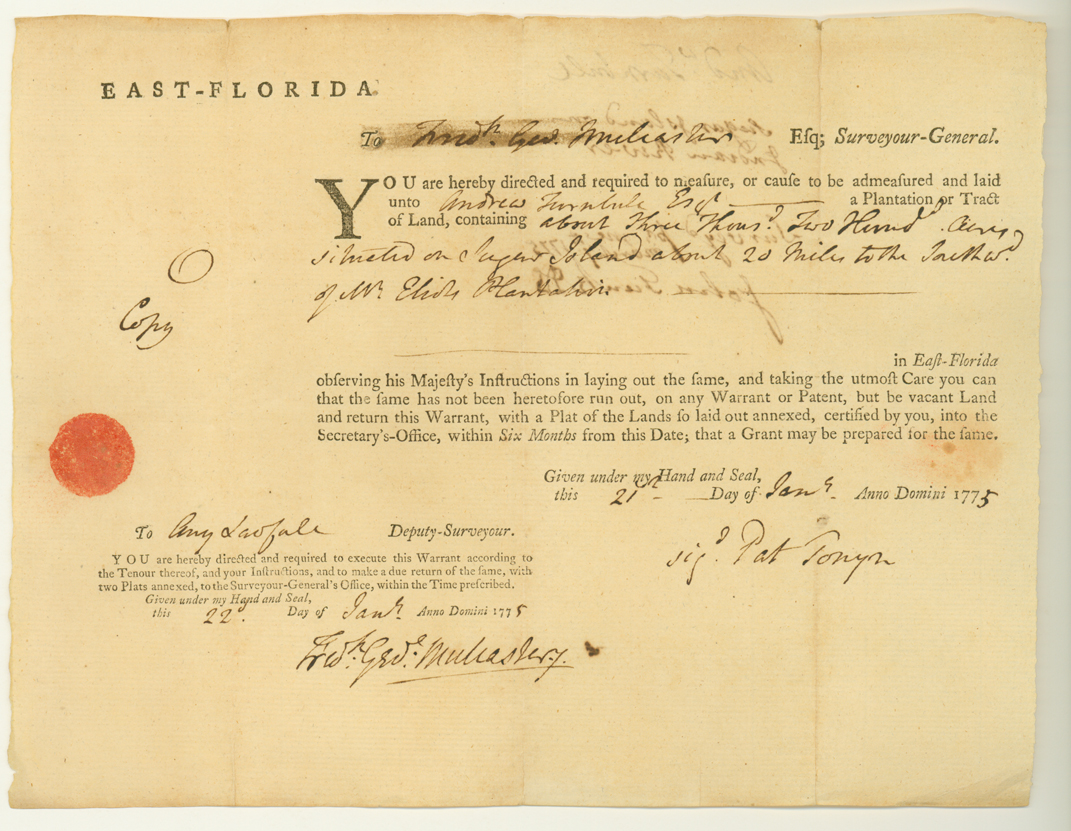 EAST-FLORIDA.
To Fredk. Geo. Mulcaster Esq; Surveyour-General.
YOU are hereby directed and required to meaſure, or cauſe to be admeaſured and laid
unto Andrew Turnbull Esqr a Plantation or Tract
of Land, containing about Three Thousd. Two Hund. Acres
situated on Island about 20 Miles to the Southwd.
of Mr. Eliots Plantation.
Copy
in Eaſt-Florida
obſerving his Majeſty's Inſtructions in laying out the ſame, and taking the utmoſt Care you can
that the ſame has not been heretofore run out, on any Warrant or Patent, but be vacant Land
and return this Warrant, with a Plat of the Lands ſo laid out annexed, certified by you, into the
Secretary's-Office, within Six Months from this Date; that a Grant may be prepared for the ſame.
Given under my Hand and Seal,
this 21st Day of Jany. Anno Domini 1775
sigd. Pat Tonyn
To Any Lawfule Deputy-Surveyour.
YOU are hereby directed and required to execute this Warrant according to
the Tenour thereof, and your Inſtructions, and to make a due return of the ſame, with
two Plats annexed, to the Surveyour-General's Office, within the Time preſcribed.
Given under my Hand and Seal,
this 22d. Day of Jany. Anno Domini 1775
Fredk. Geo. Mulcaster